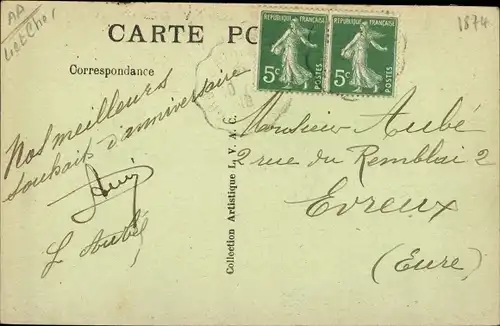 AA
Loir et Cher
1874
CARTE PO
RÉPUBLIQUE FRANÇAISE
5c
POSTES
RÉPUBLIQUE FRANÇAISE
5c
POSTES
Correspondance
Nos meilleurs
souhaits d'anniversaire
L Aubé
Collection Artistique L. V. A. C.
Monsieur Aubé
2 rue du Remblai 2
Evreux
(Eure)